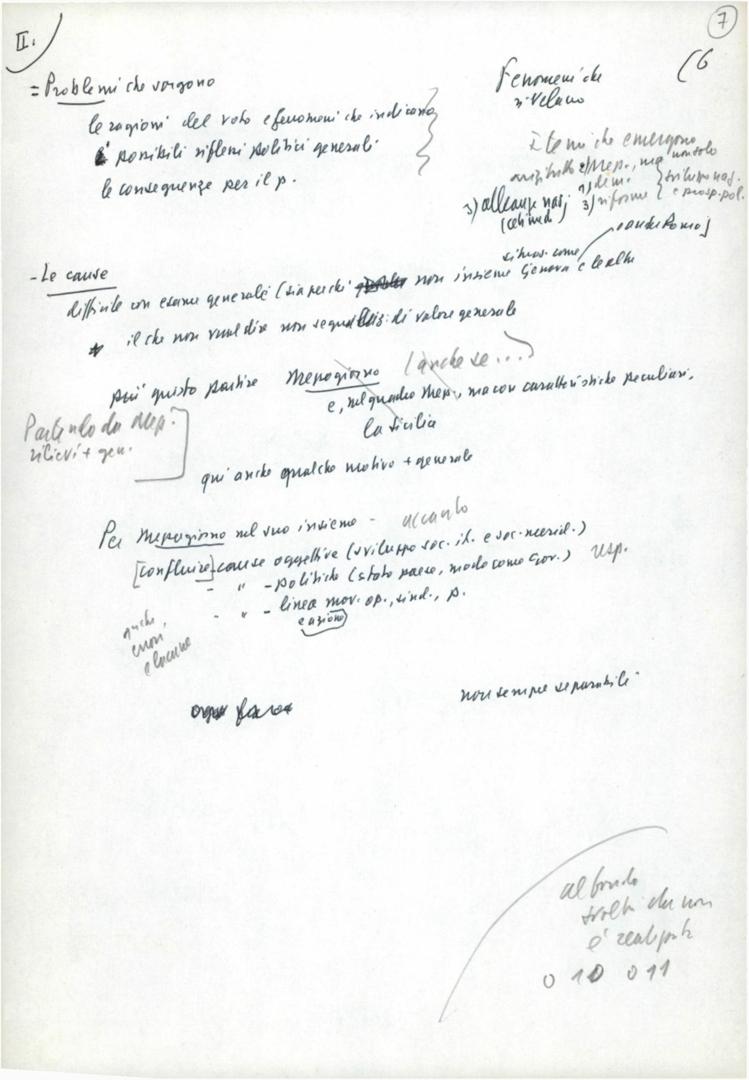 7
II.
(6
= Problemi che sorgono
le ragioni del voto e fenomeni che indicano
i possibili riflessi politici generali
le conseguenze per il p.
Fenomeni che
rivelano
I temi che emergono
anzitutto Mep., ma non solo
1) dem.
3) riforme
sviluppo naz.
e prosp. pol.
3) alleanze naz
(ceti med
- Le cause
difficile con esame generale (sia perché non insieme Genova e le altre
anche Roma)
il che non vuol dire non segnali di valore generale
può questo partire Mezzogiorno (anche se...)
e, nel quadro Mep., ma con caratteristiche peculiari,
la Sicilia
Partendo da Mep.
rilievi + gen.
qui anche qualche motivo + generale
Per Mezzogiorno nel suo insieme - accanto
[confluire] cause oggettive (sviluppo soc. it. e soc. merid.)
- " - politiche (stato paese, modo come gov.) resp.
- " - linea mov. op., sind., p.
e azione
anche
errori,
e lacune
non sempre separabili
al fondo
svolta che non
è realizzata
0 10 011